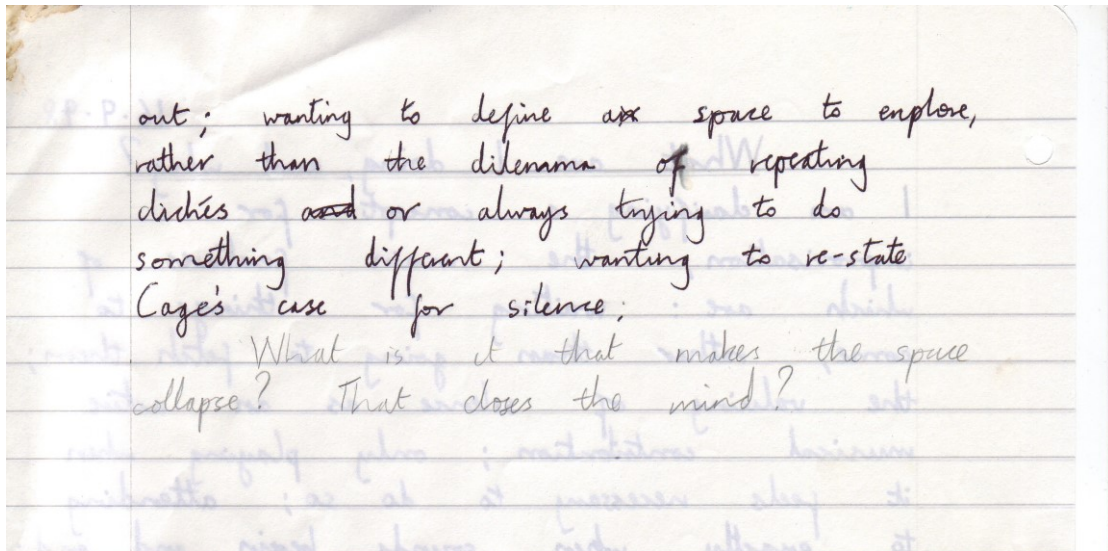 out; wanting to define a space to explore,
rather than the dilemma of repeating
clichés or always trying to do
something different; wanting to re-state
Cage's case for silence;
What is it that makes the space
collapse? That closes the mind?